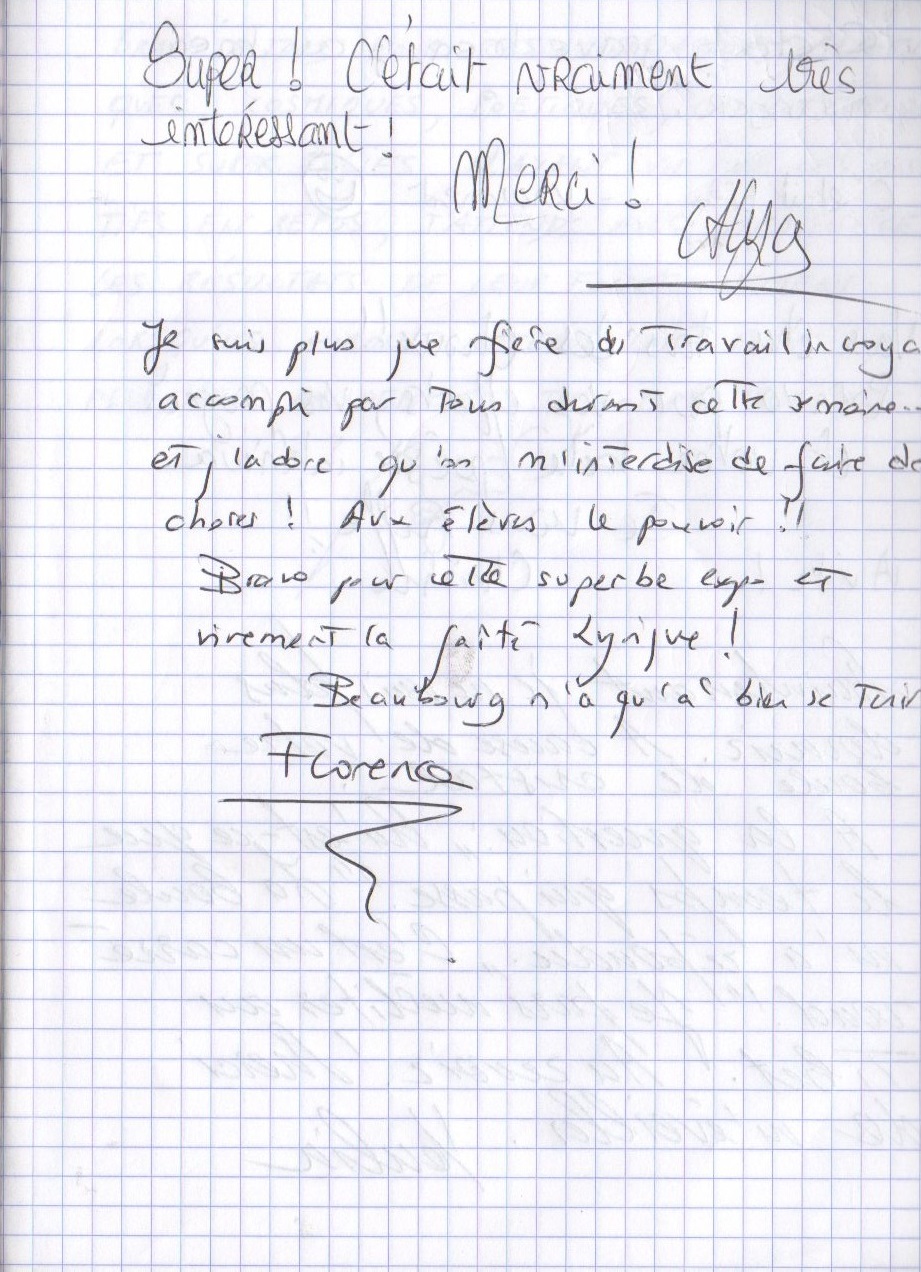 Super ! C'était vraiment très
intéressant !
Merci !
Je suis plus que fière du Travail incroya
accompli par Tous durant cette semaine..
et j'adore qu'on m'interdise de faire de
choses ! Aux élèves le pouvoir !!
Bravo pour cette superbe expo et
vivement la gaîté Lyrique !
Beaubourg n'a qu'à bien se Tenir
Florence